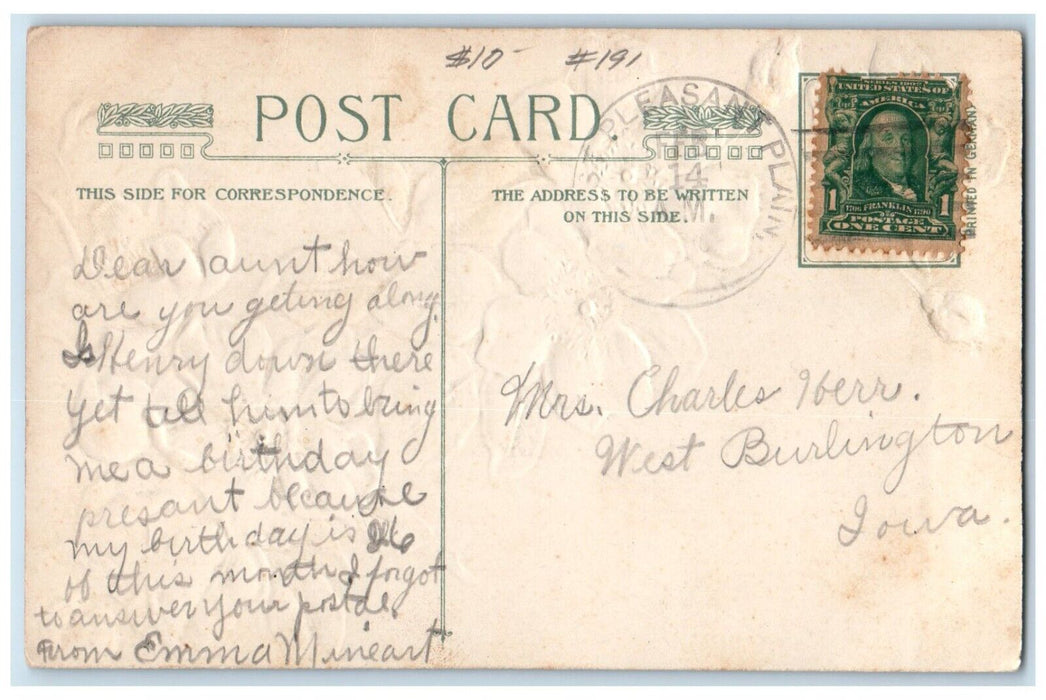 $10- #191
POST CARD
PLEASANT PLAIN,
14
M.
SERIES 1902
UNITED STATES OF
AMERICA
1 1706 FRANKLIN 1790 1
POSTAGE
ONE CENT
PRINTED IN GERMANY
THIS SIDE FOR CORRESPONDENCE.
THE ADDRESS TO BE WRITTEN
ON THIS SIDE.
Dear aunt how
are you geting along.
Is Henry down there
yet tell him to bring
me a birthday
presant because
my birthday is 26
of this month I forgot
to answer your postal
From Emma Mineart
Mrs. Charles Herr.
West Burlington
Iowa.